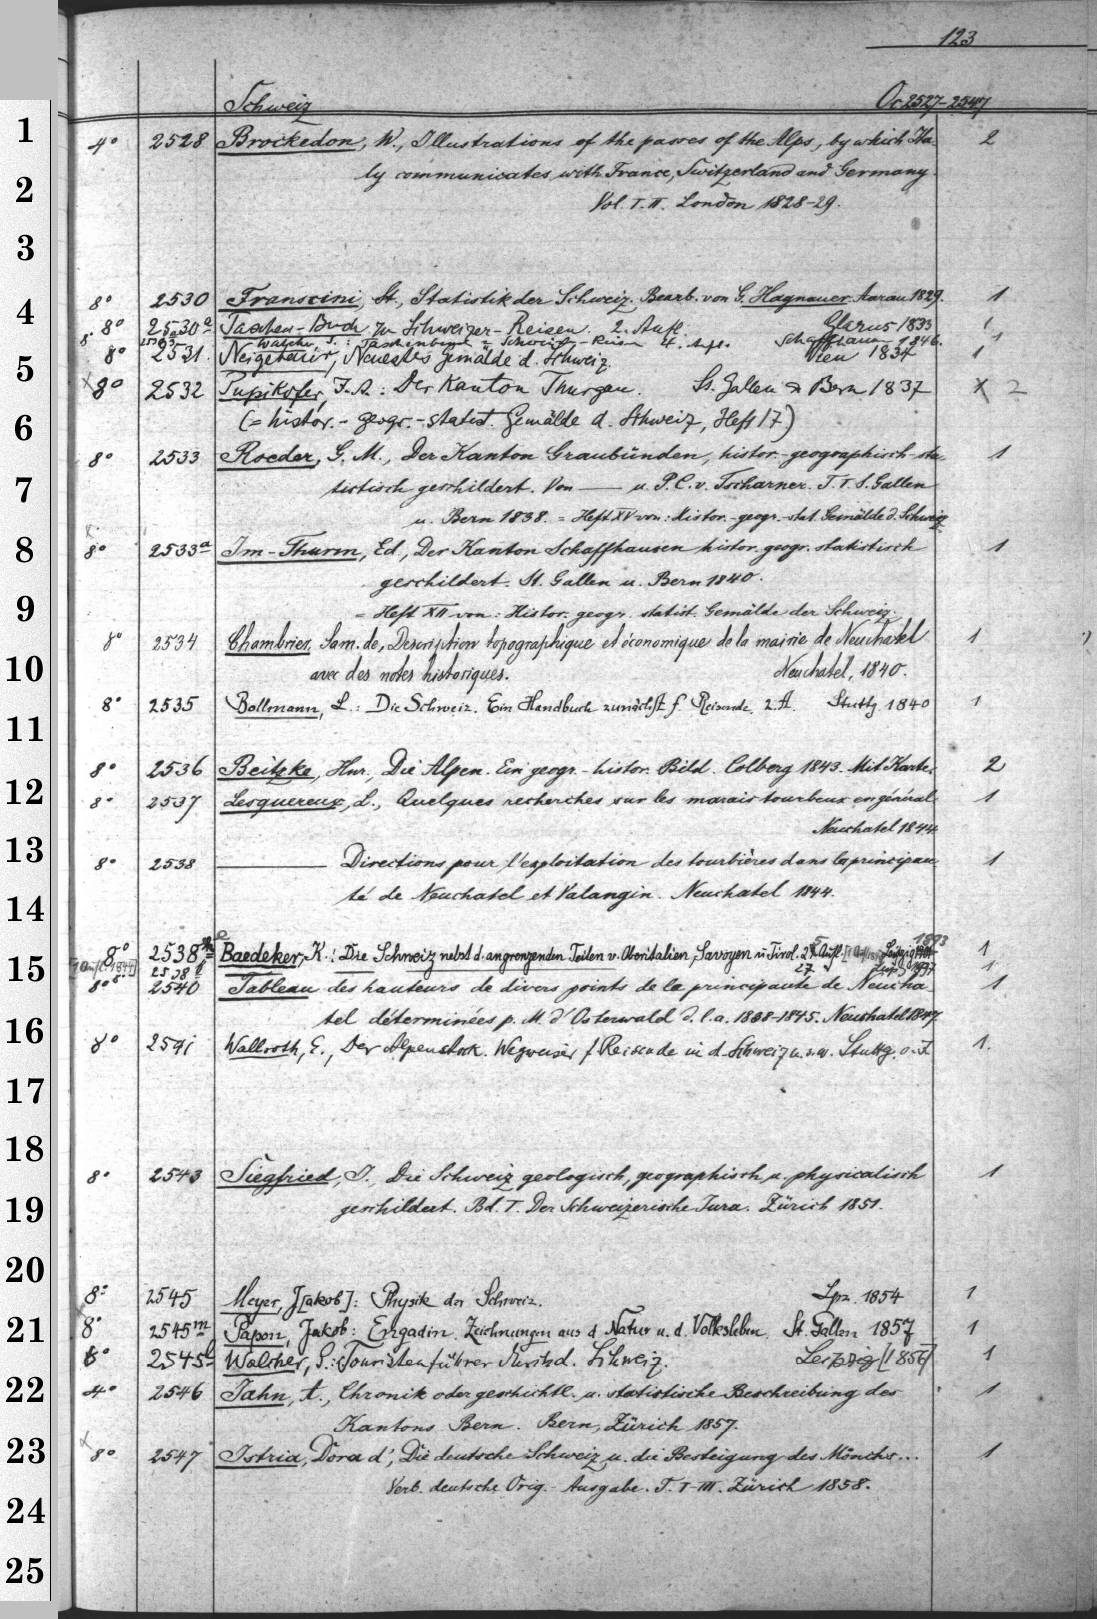 123
Schweiz Oc 2527-2547
4° 2528 Brockedon, W., Illustrations of the passes of the Alps, by which Ita- 2
ly communicates with France, Switzerland and Germany.
Vol. I. II. London 1828-29.
8° 2530 Franscini, St., Statistik der Schweiz. Bearb. von G. Hagnauer. Aarau 1829. 1
8° 2530a Taschen-Buch zu Schweizer-Reisen. 2. Aufl. Glarus 1833 1
8° Walcher, S.: Taschenbuch z. Schweizer-Reisen 4. Aufl. Schaffhaus 1846. 1
8° 2531. Neigebaur, Neuestes Gemälde d. Schweiz. Wien 1834 1
8° 2532 Pupikofer, J. A.: Der Kanton Thurgau. St. Gallen & Bern 1837 2
(= histor.- geogr.- statist. Gemälde d. Schweiz, Heft 17)
8° 2533 Roeder, G. M., Der Kanton Graubünden, histor.-geographisch-sta- 1
tistisch geschildert. Von — u. P. C. v. Tscharner. T. I S. Gallen
u. Bern 1838. = Heft XV von: Histor.-geogr.-stat. Gemälde d. Schweiz
8° 2533a Im-Thurm, Ed., Der Kanton Schaffhausen histor. geogr. statistisch 1
geschildert. St. Gallen u. Bern 1840.
= Heft XII von: Histor. geogr. statist. Gemälde der Schweiz.
8° 2534 Chambrier, Sam. de, Description topographique et économique de la mairie de Neuchatel 1
avec des notes historiques. Neuchatel, 1840.
8° 2535 Bollmann, L.: Die Schweiz. Ein Handbuch zunächst f. Reisende. 2. A. Stuttg. 1840 1
8° 2536 Beitzke, Hnr., Die Alpen. Ein geogr.-histor. Bild. Colberg 1843. Mit Karte. 2
8° 2537 Lesquereux, L., Quelques recherches sur les marais tourbeux en général. 1
Neuchatel 1844
8° 2538 ——— Directions pour l'exploitation des tourbières dans la principau- 1
té de Neuchatel et Valangin. Neuchatel 1844.
1893
8° 2538 Baedeker, K.: Die Schweiz nebst d. angrenzenden Teilen v. Oberitalien, Savoyen u Tirol. Aufl. Leipzig 1
2538 27. 1897 1
8° 2540 Tableau des hauteurs de divers points de la principauté de Neucha- 1
tel déterminées p. M. d'Osterwald d. l. a. 1838-1845. Neuchatel 1847
8° 2541 Wallroth, E., Der Alpenstock. Wegweiser f Reisende in d. Schweiz u.s.w. Stuttg. o. J. 1.
8° 2543 Siegfried, J., Die Schweiz geologisch, geographisch u. physicalisch 1
geschildert. Bd. I. Der Schweizerische Jura. Zürich 1851.
8° 2545 Meyer, J[akob]: Physik der Schweiz. Lpz. 1854 1
8° 2545m Papon, Jakob: Engadin. Zeichnungen aus d. Natur u. d. Volksleben. St. Gallen 1857 1
8° 2545b Walcher, S.: Touristenführer durch d. Schweiz. Leipzig [1856] 1
4° 2546 Jahn, A., Chronik oder geschichtl. u. statistische Beschreibung des 1
Kantons Bern. Bern, Zürich 1857.
8° 2547 Istria, Dora d', Die deutsche Schweiz u. die Besteigung des Mönchs... 1
Verb. deutsche Orig.-Ausgabe. T. I-III. Zürich 1858.
1
2
3
4
5
6
7
8
9
10
11
12
13
14
15
16
17
18
19
20
21
22
23
24
25